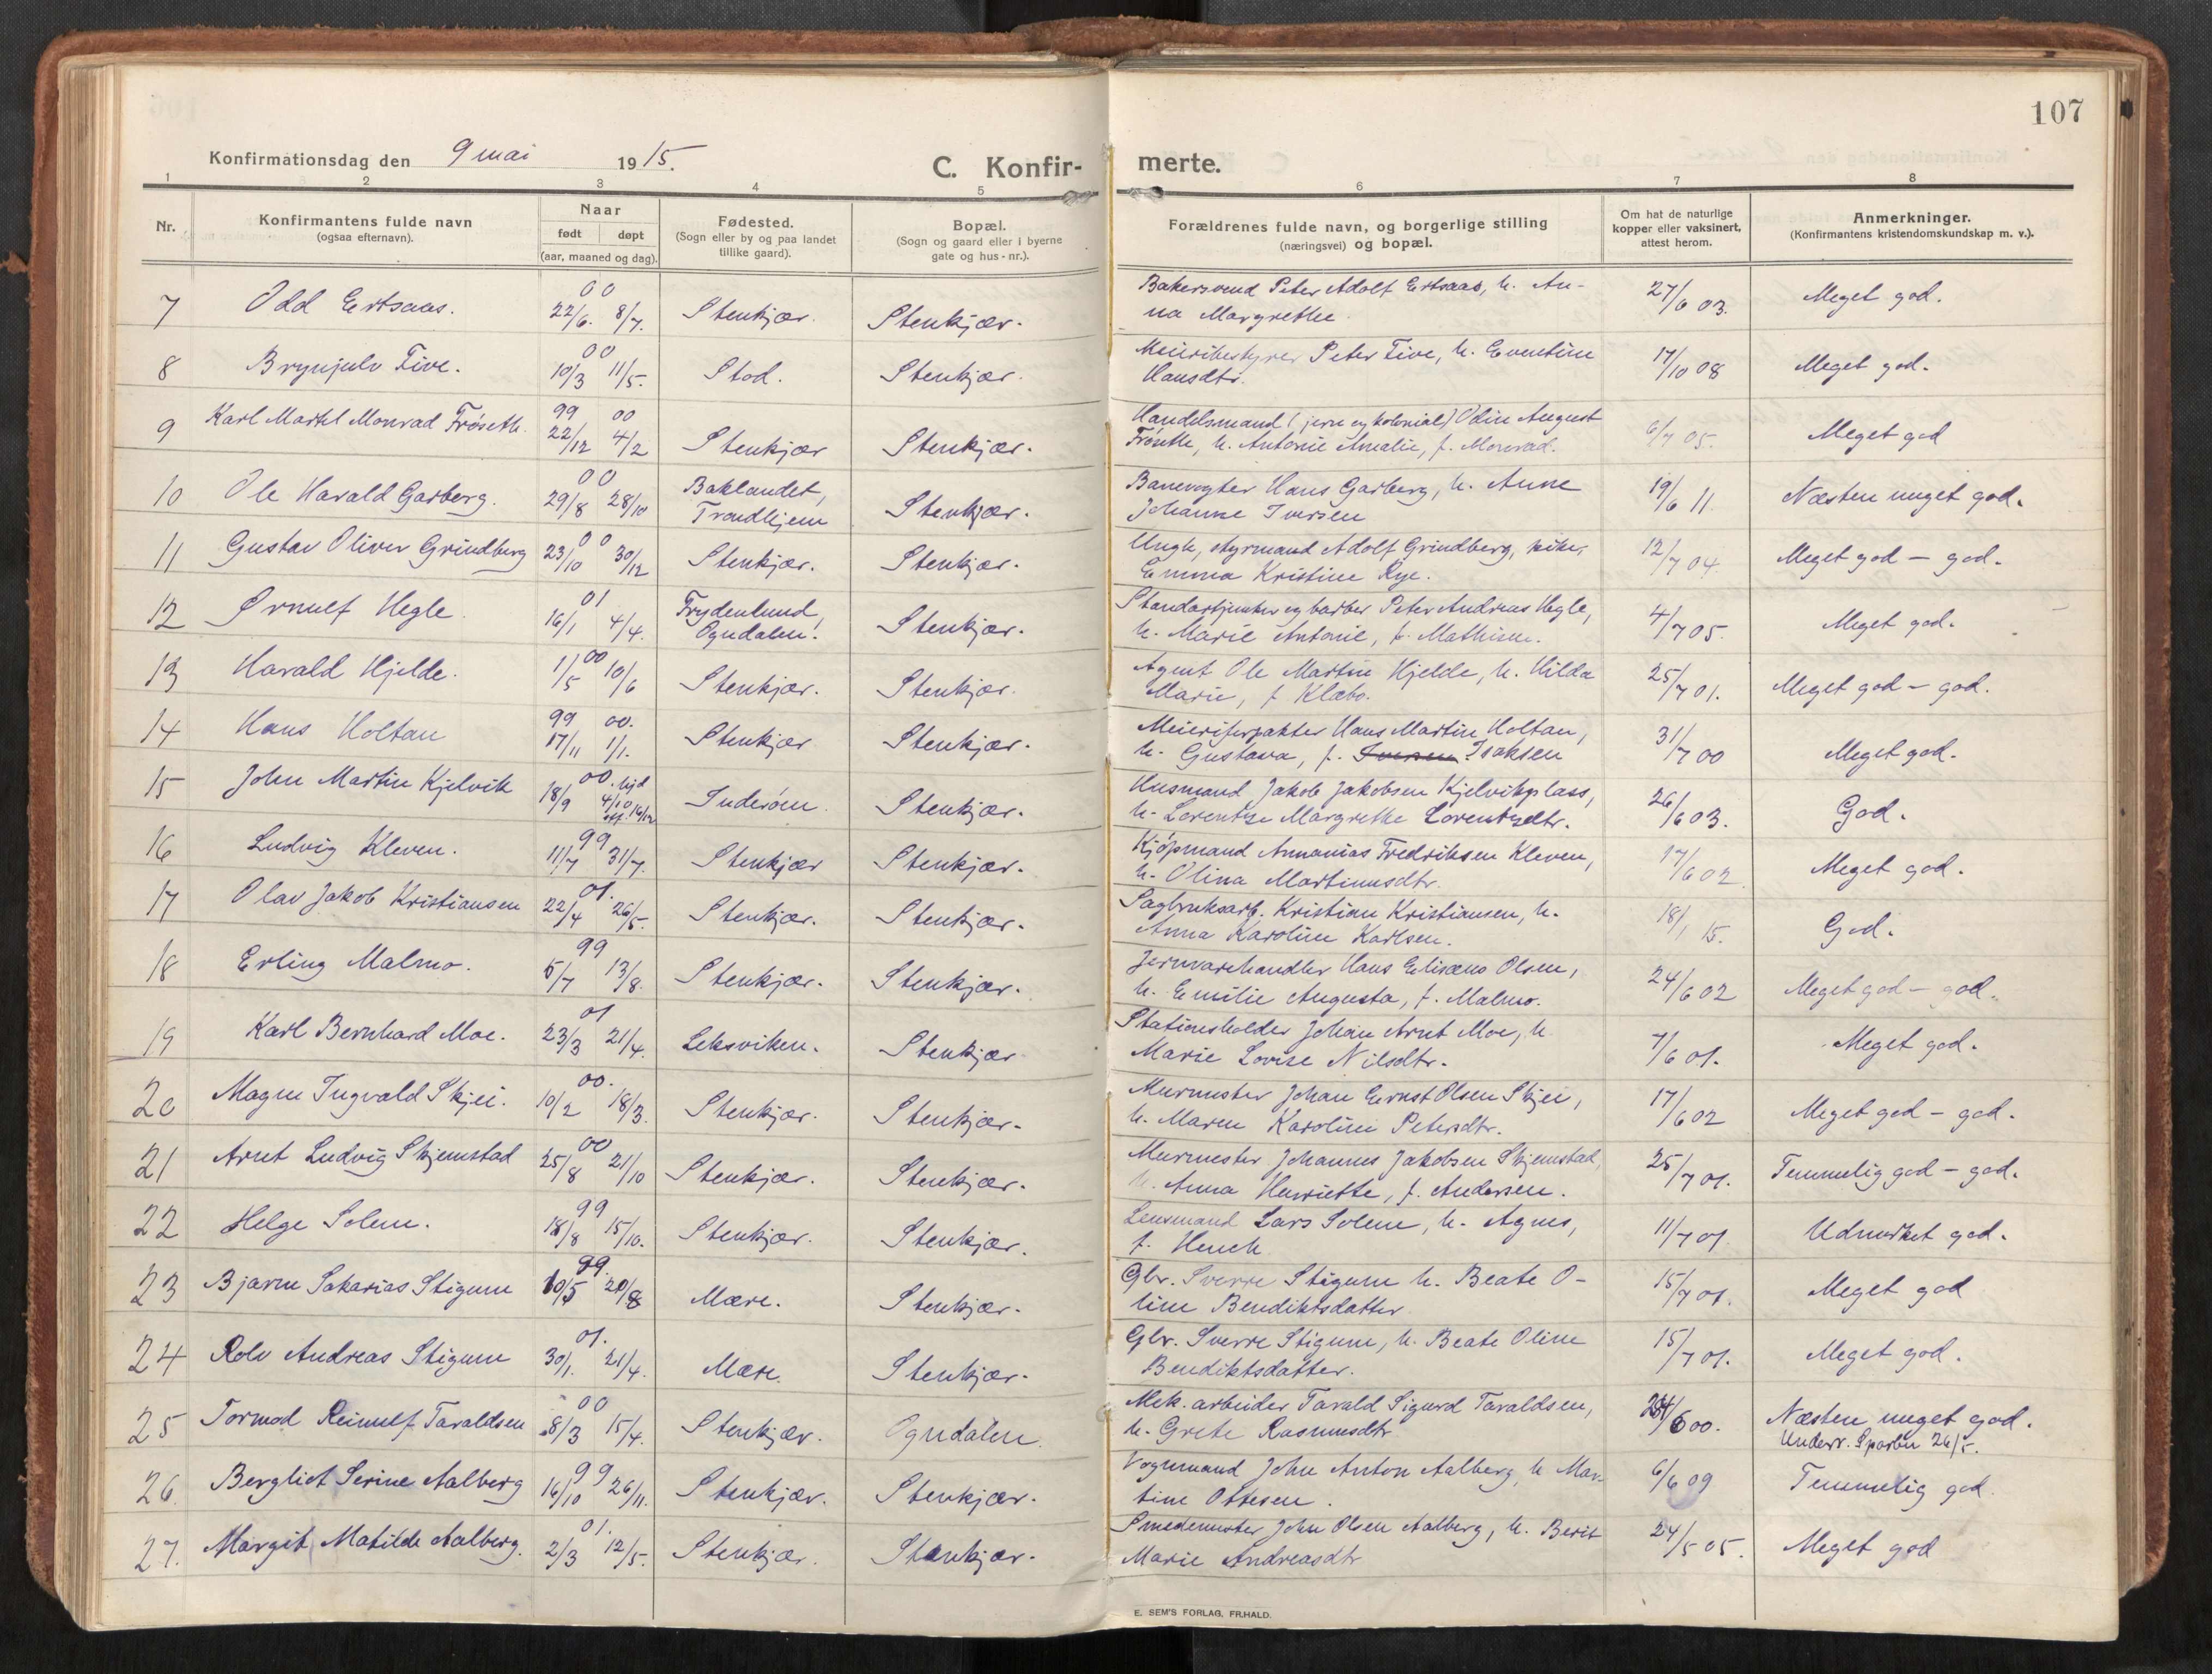 107
Konfirmationsdag den 9 mai 1915.
C. Konfir- merte.
1 2 3 4 5 6 7 8
Nr. Konfirmantens fulde navn (ogsaa efternavn). Naar født døpt (aar, maaned og dag). Fødested. (Sogn eller by og paa landet tillike gaard). Bopæl. (Sogn og gaard eller i byerne gate og hus-nr.). Forældrenes fulde navn, og borgerlige stilling (næringsvei) og bopæl. Om hat de naturlige kopper eller vaksinert, attest herom. Anmerkninger. (Konfirmantens kristendomskundskap m. v.).
7 Odd Ertsaas. 00 22/6. 8/7. Stenkjær. Stenkjær. Bakersvend Peter Adolf Ertsaas, h. An-
na Margrethe. 27/6 03. Meget god.
8 Brynjulv Five. 00 10/3 11/5. Stod. Stenkjær. Meieribestyrer Peter Five, h. Eventine
Hansdtr. 17/10 08 Meget god.
9 Karl Martel Monrad Frøseth. 99 22/12 00 4/2 Stenkjær Stenkjær. Handelsmand (jern og kolonial) Odin August
Frøseth, h. Antonie Amalie, f. Monrad. 6/7 05. Meget god
10 Ole Harald Garberg. 00 29/8 28/10 Baklandet,
Trondhjem Stenkjær. Banevogter Hans Garberg, h. Anne
Johanne Iversen 19/6 11. Næsten meget god.
11 Gustav Oliver Grindberg 00 23/10 30/12 Stenkjær. Stenkjær. Ungk, styrmand Adolf Grindberg, pike,
Emma Kristine Rye. 12/7 04 Meget god – god.
12 Ørnulf Hegle. 01 16/1 4/4. Frydenlund,
Ogndalen. Stenkjær. Standartjunker og barber Peter Andreas Hegle,
h. Marie Antonie, f. Mathisen. 4/7 05. Meget god.
13 Harald Hjelde. 00 1/5 10/6 Stenkjær. Stenkjær. Agent Ole Martin Hjelde, h. Hilda
Marie, f Klæbo. 25/7 01. Meget god – god.
14 Hans Holtan 99 17/11 00. 1/1. Stenkjær Stenkjær. Meieriforpakter Hans Martin Holtan,
h. Gustava, f. Iversen Isaksen 31/7 00 Meget god.
15 John Martin Kjelvik 00. 18/9 hjd 4/10 off. 16/12 Inderøen. Stenkjær. Husmand Jakob Jakobsen Kjelvikplass,
h. Lorentse Margrethe Lorentsdtr. 26/6 03. God.
16 Ludvig Kleven. 99 11/7 31/7. Stenkjær Stenkjær. Kjøpmand Annanias Fredriksen Kleven,
h. Olina Martinusdtr. 17/6 02. Meget god.
17 Olav Jakob Kristiansen 01. 22/4 26/5. Stenkjær. Stenkjær. Sagbruksarb. Kristian Kristiansen, h.
Anna Karoline Karlsen. 18/1 15. God.
18 Erling Malmo. 99 5/7 13/8. Stenkjær. Stenkjær. Jernvarehandler Hans Elisæus Olsen,
h. Emilie Augusta, f. Malmo. 24/6 02 Meget god – god.
19 Karl Bernhard Moe. 01 23/3 21/4. Leksviken. Stenkjær Stationsholder Johan Arnt Moe, h.
Marie Lovise Nilsdtr. 7/6 01. Meget god.
20 Magne Ingvald Skjei. 00. 10/2 18/3. Stenkjær. Stenkjær. Murmester Johan Ernst Olsen Skjei,
h. Maren Karoline Petersdtr. 17/6 02 Meget god – god.
21 Arnt Ludvig Skjemstad 00 25/8 21/10 Stenkjær. Stenkjær. Murmester Johannes Jakobsen Skjemstad,
h. Anna Henriette, f. Andersen. 25/7 01. Temmelig god – god.
22 Helge Solem. 99 18/8 15/10. Stenkjær. Stenkjær. Lensmand Lars Solem, h. Agnes,
f. Hench 11/7 01 Udmerket god.
23 Bjarne Sakarias Stigum 99. 10/5 20/8 Mære. Stenkjær. Gbr. Sverre Stigum h. Beate O-
line Bendiktsdatter 15/7 01. Meget god
24 Rolv Andreas Stigum 01. 30/1. 21/4. Mære. Stenkjær. Gbr. Sverre Stigum, h. Beate Oline
Bendiktsdatter. 15/7 01. Meget god.
25 Tormod Reinulf Taraldsen 00 8/3 15/4. Stenkjær. Ogndalen. Mek. arbeider Tarald Sigurd Taraldsen,
h. Grete Rasmusdtr 24/6 00. Næsten meget god.
Underv. Sparbu 26/5.
26. Bergliot Serine Aalberg 99 16/10 26/11. Stenkjær. Stenkjær. Vognmand John Anton Aalberg, h Mar-
tine Ottesen. 6/6 09 Temmelig god.
27. Margit Matilde Aalberg. 01. 2/3 12/5. Stenkjær. Stenkjær. Smedemester John Olsen Aalberg, h. Berit
Marie Andreasdtr 24/5 05. Meget god
E. SEM'S FORLAG, FR.HALD.